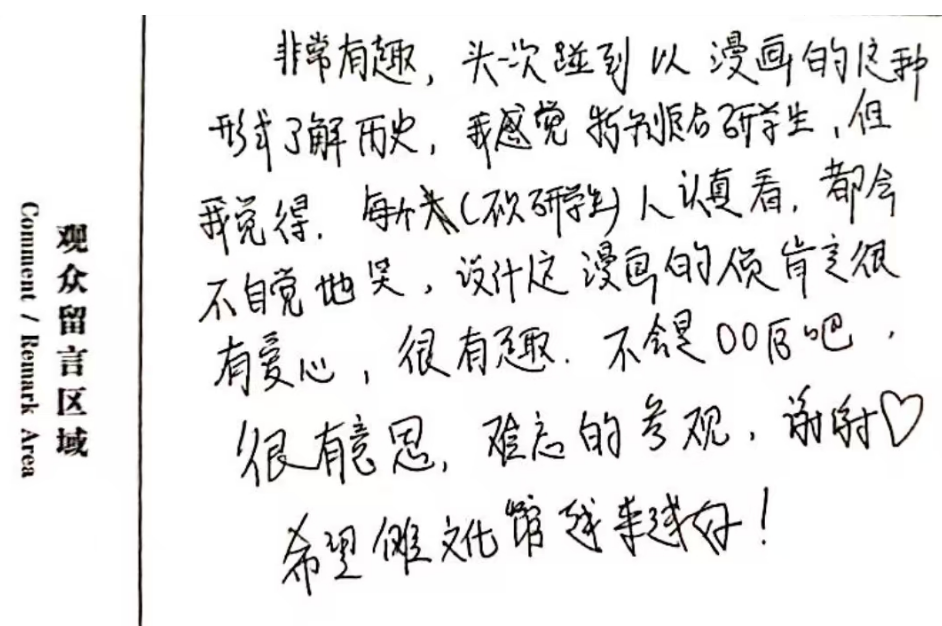 观众留言区域
Comment / Remark Area
非常有趣，头一次碰到以漫画的这种
形式了解历史，我感觉特别适合研学生，但
我觉得，每个(不仅研学生)人认真看，都会
不自觉地笑，设计这漫画的人员肯定很
有爱心，很有趣．不会是00后吧，
很有意思，难忘的参观，谢谢♡
希望傩文化馆越来越好！